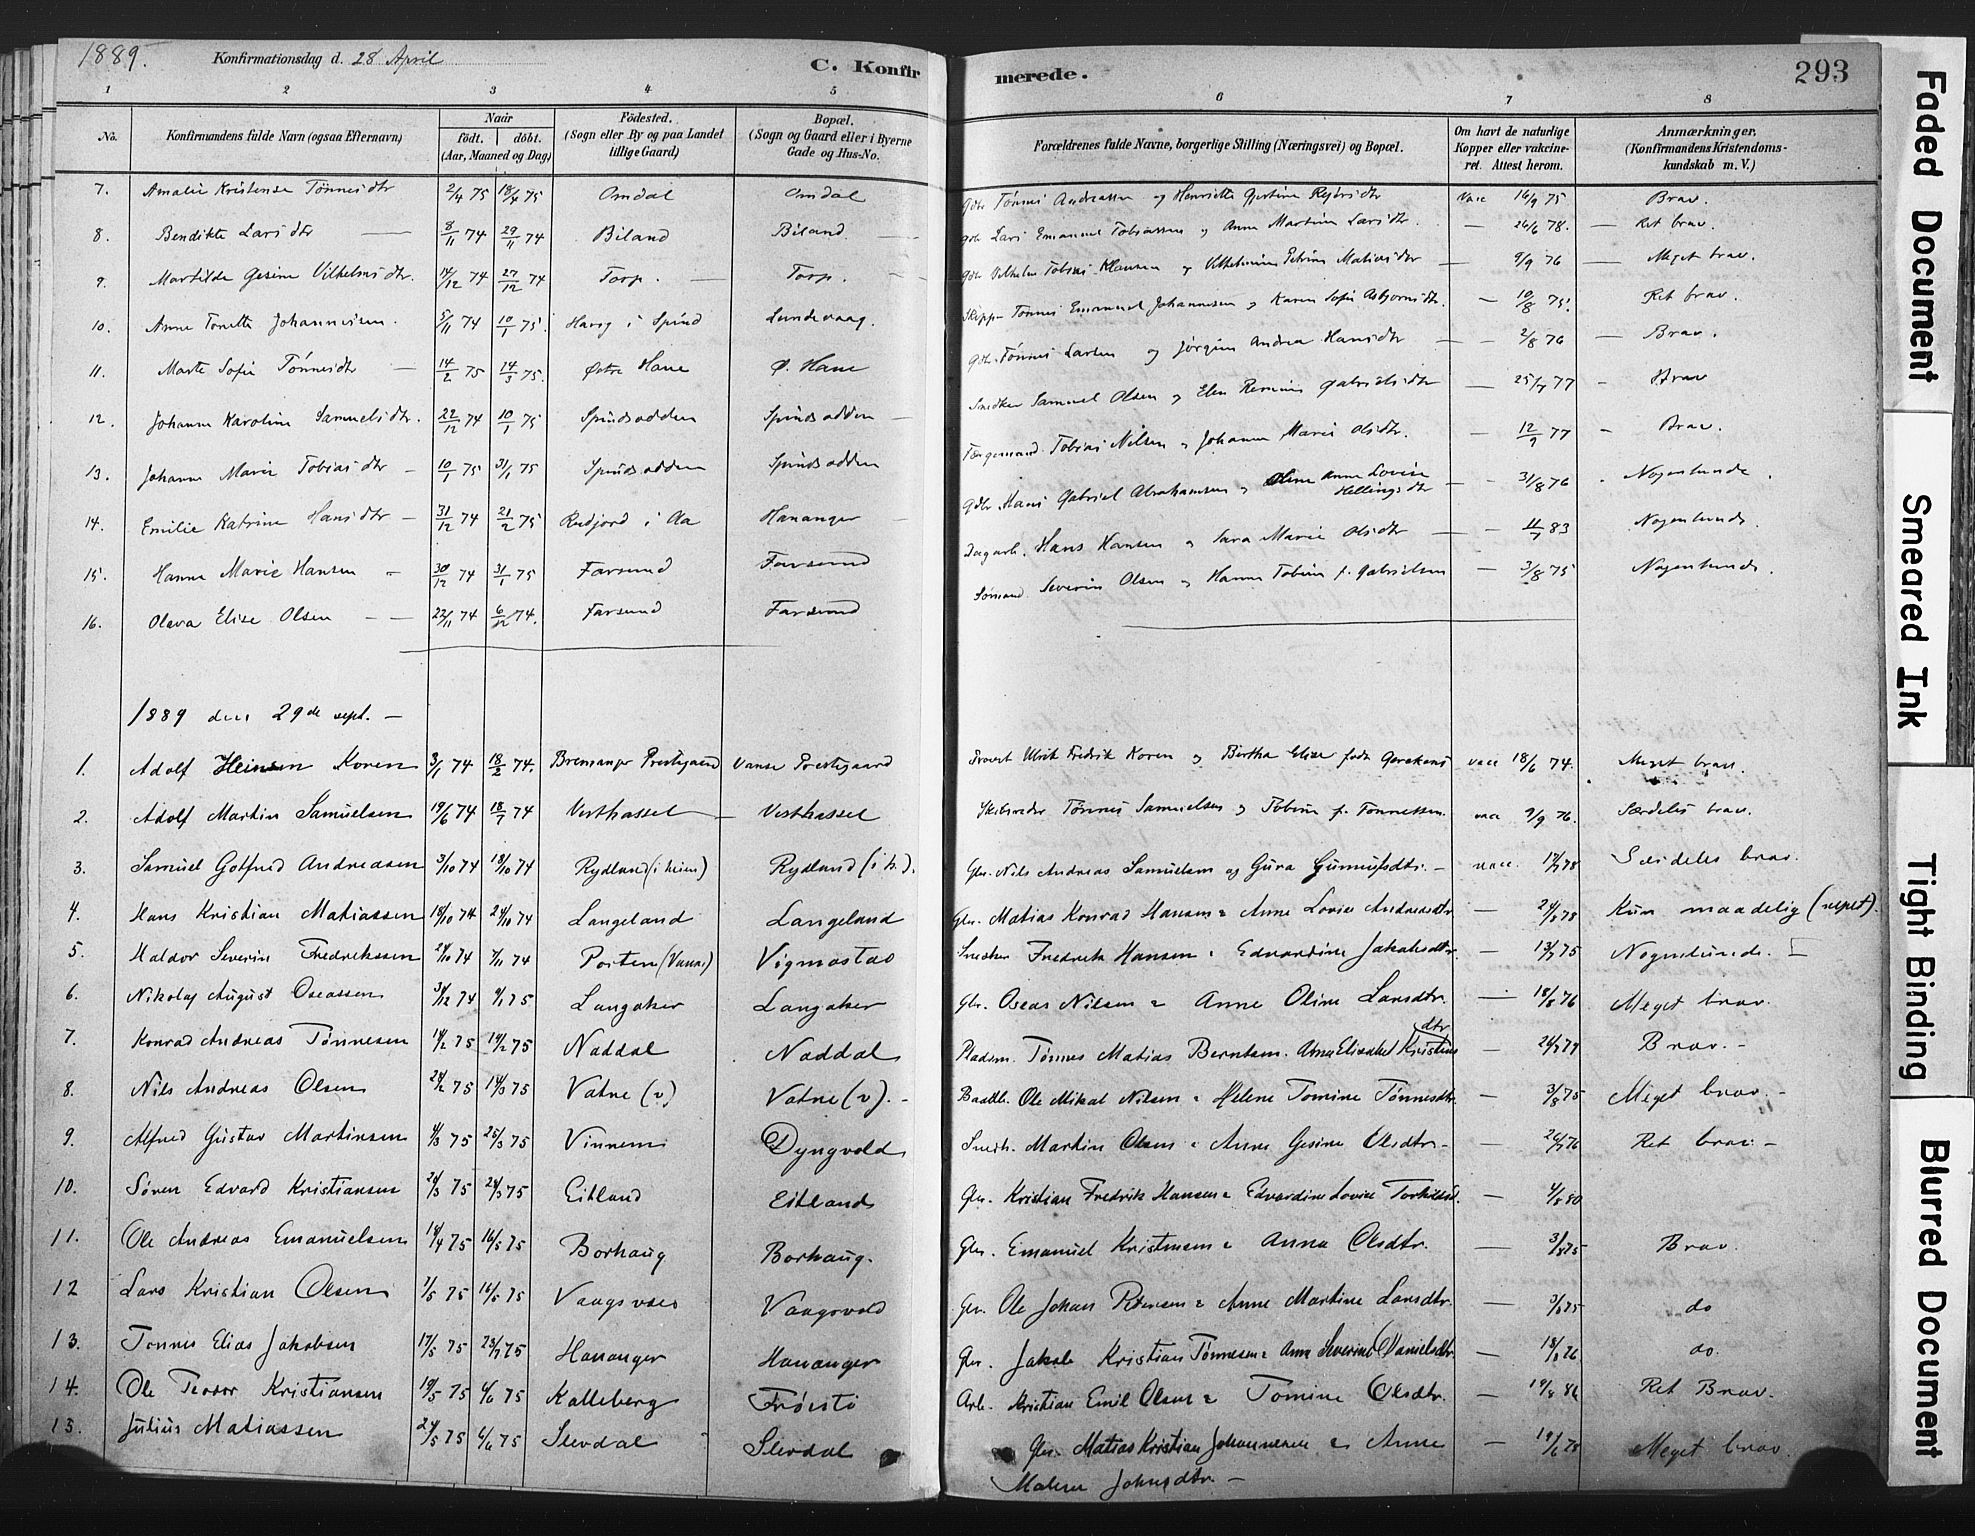 1889. Konfirmationsdag d. 28 April C. Konfirmerede. 293
1 2 3 4 5 6 7 8
No. Konfirmandens fulde Navn (ogsaa Efternavn) Naar födt. döbt. (Aar, Maaned og Dag) Födested. (Sogn eller By og paa Landet tillige Gaard) Bopæl. (Sogn og Gaard eller i Byerne Gade og Hus-No. Forældrenes fulde Navne, borgerlige Stilling (Næringsvei) og Bopæl. Om havt de naturlige Kopper eller vakcineret. Attest herom. Anmærkninger. (Konfirmandens Kristendomskundskab m. V.)
7. Amalie Kristense Tønnesdtr 2/4 75 18/4 75 Omdal Omdal Gbr Tønnes Andreassen og Henriette Gjertine Vacc 16/9 75 Brav.
8. Bendikte Larsdtr — 8/11 74 29/11 74 Biland Biland. — Gbr Lars Emanuel Tobiassen og Anne Martine Larsdtr. — 26/6 78. — Ret brav.
9. Martilde Gesine Vilhelmsdtr. 14/12 74 27/12 74 Torp. — Torp. — Gbr Vilhelm Tobias Klausen og Vilhelmine Petrine Matiasdtr — 9/9 76 — Meget brav.
10. Anne Tonette Johannesen. 5/11 74 10/1 75. Havog i Spind Lundevaag. Skipp. Tønnes Emanuel Johannesen og Karen Sofie Asbjørnsdtr. — 10/8 75. Ret brav.
11. Marte Sofie Tønnesdtr — 14/2 75 14/3 75. Østre Hane Ø. Hane Gbr. Tønnes Larsen og Jørgine Andrea Hansdtr — 2/8 76 — Brav.
12. Johanne Karoline Samuelsdtr. 22/12 74 10/1 75 Spindsodden Spindsodden — Snedker Samuel Olsen og Elen Remine Gabrielsdtr — 25/7 77 - Brav
13. Johanne Marie Tobiasdtr — 10/1 75 31/1 75 Spindsodden Spindsodden Færgemand Tobias Nilsen og Johanne Marie Olsdtr. — 12/9 77 - Brav.
14. Emilie Katrine Hansdtr — 31/12 74 21/2 75 Rudjord i Aa Hananger — Gbr. Hans Gabriel Abrahamsen og Anne Lovise Hellingsdtr — 31/8 76 . Nogenlunde.
15. Hanne Marie Hansen - 30/12 74 31/1 75 Farsund Farsund Dagarb. Hans Hansen og Sara Marie Olsdtr — 11/7 83 Nogenlunde.
16. Olava Elise Olsen — 22/11 74 6/12 74. Farsund Farsund Sømand Severin Olsen og Hanne Tobine f. Gabrielsen — 3/8 75 Nogenlunde.
1889 den 29de sept. —
1. Adolf Koren 3/1 74 18/2 74. Bremanger Prestegaard Vanse Prestegaard Provst Ulrik Fredrik Koren og Birtha Elise født Gerckens vacc 18/6 74. Meget brav.
2. Adolf Martin Samuelsen 19/6 74 18/7 74 Vesthassel — Vesthassel Skibsreder Tønnes Samuelsen og Tobine f. Tønnessen. vacc 9/9 76. Særdeles brav.
3. Samuel Gotfred Andreasen 3/10 74 18/10 74 Rydland (i heim) Rydland (i h.). Gbr. Nils Andreas Samuelsen og Gura Gunnufsdtr. — vacc. 17/7 78 Særdeles brav.
4. Hans Kristian Matiassen 18/10 74 24/10 74 Langeland Langeland Gbr. Matias Konrad Hansen & Anne Lovise Andreasdtr — 24/7 78 Kun maadelig (repet).
5. Haldor Severin Fredrikssen 24/10 74 7/11 74 Porten (Vanse) Vigmostad Snedker Fredrik Hansen & Edvardine Jakobsdtr. — 13/7 75 Nogenlunde.
6. Nikolaj August Oseassen 31/12 74 9/1 75 Langaker Langaker Gbr. Oseas Nilsen & Anne Oline Larsdtr. — 18/8 76 Meget brav.
7. Konrad Andreas Tønnesen 14/2 75 19/2 75 Naddal Naddal Pladsm. Tønnes Matias Berntsen. Anne Elisabet Kristensdtr — 24/7 79 Brav. -
8. Nils Andreas Olsen 24/2 75 14/3 75 Vatne (v) Vatne (v). - Baadb. Ole Mikal Nilsen & Helene Tomine Tønnesdtr — 3/8 75 Meget brav. -
9. Alfred Gustav Martinsen 4/3 75 25/3 75 Vinnem Dyngvold Snedk. Martin Olsen & Anne Gesine Olsdtr. — 26/7 76 Ret brav. -
10. Søren Edvard Kristiansen 24/3 75 24/3 75 Eitland Eitland Gbr. Kristian Fredrik Hansen & Edvardine Lovise Torkildsd. — 4/8 80
11. Ole Andreas Emanuelsen 18/4 75 16/5 75 Borhaug Borhaug. Gbr. Emanuel Kristensen & Anna Olsdtr. — 3/8 75 Brav.
12 Lars Kristian Olsen 1/5 75 16/5 75 Vaagsvold Vaagsvold Gbr. Ole Johan Petersen & Anne Martine Larsdtr. — 3/8 75 do
13. Tønnes Elias Jakobsen 17/5 75 23/7 75 Hananger Hananger Gbr. Jakob Kristian Tønnesen & Anne Severine Danielsdtr. — 18/8 76 do.
14. Ole Teodor Kristiansen 19/5 75 6/6 75 Kalleberg Frøisti Arb. Kristian Emil Olsen & Tomine Olsdtr. — 19/8 86 Ret Brav.
15. Julius Matiassen 24/5 75 6/6 75 Slevdal Slevdal Gbr. Matias Kristian Johannesen & Anne — 19/6 78 Meget brav.
Malene Johnsdtr. —
Faded Document
Smeared Ink
Tight Binding
Blurred Document